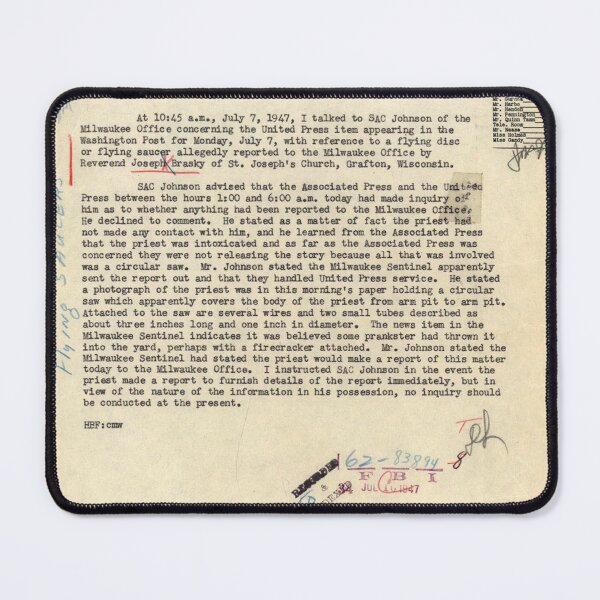 Mr. Harbo
Mr. Hendon
Mr. Pennington
Mr. Quinn Tamm
Tele. Room
Mr. Nease
Miss Holmes
Miss Gandy
At 10:45 a.m., July 7, 1947, I talked to SAC Johnson of the
Milwaukee Office concerning the United Press item appearing in the
Washington Post for Monday, July 7, with reference to a flying disc
or flying saucer allegedly reported to the Milwaukee Office by
Reverend Joseph Brasky of St. Joseph's Church, Grafton, Wisconsin.
SAC Johnson advised that the Associated Press and the United
Press between the hours 1:00 and 6:00 a.m. today had made inquiry of
him as to whether anything had been reported to the Milwaukee Office.
He declined to comment. He stated as a matter of fact the priest had
not made any contact with him, and he learned from the Associated Press
that the priest was intoxicated and as far as the Associated Press was
concerned they were not releasing the story because all that was involved
was a circular saw. Mr. Johnson stated the Milwaukee Sentinel apparently
sent the report out and that they handled United Press service. He stated
a photograph of the priest was in this morning's paper holding a circular
saw which apparently covers the body of the priest from arm pit to arm pit.
Attached to the saw are several wires and two small tubes described as
about three inches long and one inch in diameter. The news item in the
Milwaukee Sentinel indicates it was believed some prankster had thrown it
into the yard, perhaps with a firecracker attached. Mr. Johnson stated the
Milwaukee Sentinel had stated the priest would make a report of this matter
today to the Milwaukee Office. I instructed SAC Johnson in the event the
priest made a report to furnish details of the report immediately, but in
view of the nature of the information in his possession, no inquiry should
be conducted at the present.
HBF:cmw
Flying Saucers
RECORDED
&
62-83894-8
F B I
JUL 1947